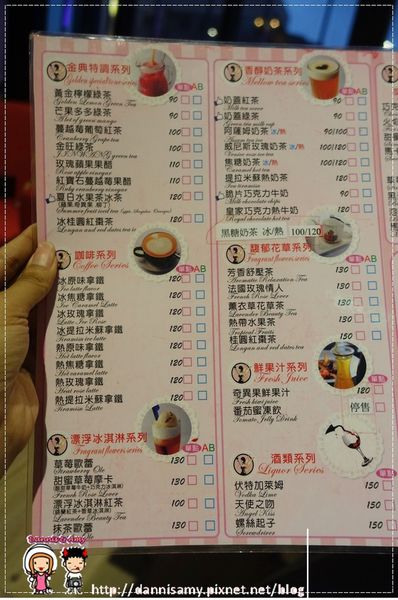 金典特調系列
Golden special tone series
單點 AB
黃金檸檬綠茶 90
Golden Lemon Green Tea
芒果多多綠茶 90
A lot of green mango
蔓越莓葡萄紅茶 100
Cranberry Grape tea
金旺綠茶 100
JINWANG green tea
玫瑰蘋果果醋 110
Rose apple vinegar
紅寶石蔓越莓果醋 110
Ruby cranberry vinegar
夏日水果冰茶 120
Summer fruit iced tea
冰桂圓紅棗茶 120
Longan and red dates tea ic
咖啡系列
Coffee Series
單點 AB
冰原味拿鐵 120
Ice latte flavor
冰焦糖拿鐵 130
Ice Caramel Latte
冰玫瑰拿鐵 130
Latte Ice Rose
冰提拉米蘇拿鐵 130
Tiramisu ice latte
熱原味拿鐵 110
Hot latte flavor
熱焦糖拿鐵 120
Hot caramel latte
熱玫瑰拿鐵 120
Heat rose latte
熱提拉米蘇拿鐵 120
Tiramisu Latte
漂浮冰淇淋系列
Fragrant flowers series
單點 AB
草莓歐蕾 130
Strawberry Ole
甜蜜草莓摩卡 130
French Rose Lover
漂浮冰淇淋紅茶 100
Lavender Beauty Tea
抹茶歐蕾 130
香醇奶茶系列
Mellow tea series
單點 AB
奶蓋紅茶 90
Milk tea cover
奶蓋綠茶 90
Green tea milk cup
阿薩姆奶茶 冰/熱 100/110
威尼斯玫瑰奶茶 冰/熱 100/120
Venice rose tea
焦糖奶茶 冰/熱 100/120
Caramel tea
提拉米蘇熱奶茶 120
Tiramisu Hot Tea
脆片巧克力牛奶 110
Milk chocolate chips
皇家巧克力熱牛奶 120
Royal hot chocolate milk
黑糖奶茶 冰/熱 100/120
馥郁花草系列
Fragrant flowers series
單點 AB
芳香舒壓茶 120
Aromatic Relaxation Tea
法國玫瑰情人 120
French Rose Lover
薰衣草花草茶 120
Lavender Beauty Tea
熱帶水果茶 120
Tropical Fruits
桂圓紅棗茶 120
Longan and red dates tea
鮮果汁系列
Fresh Juice
單點
奇異果鮮果汁 120
Fresh kiwi juice
番茄蜜凍飲 停售
Tomato Jelly Drink
酒類系列
Liquor Series
伏特加萊姆 130
Vodka Lime
天使之吻 130
Angel Kiss
螺絲起子 130
Screwdriver
Dannis & Amy
http://dannisamy.pixnet.net/blog